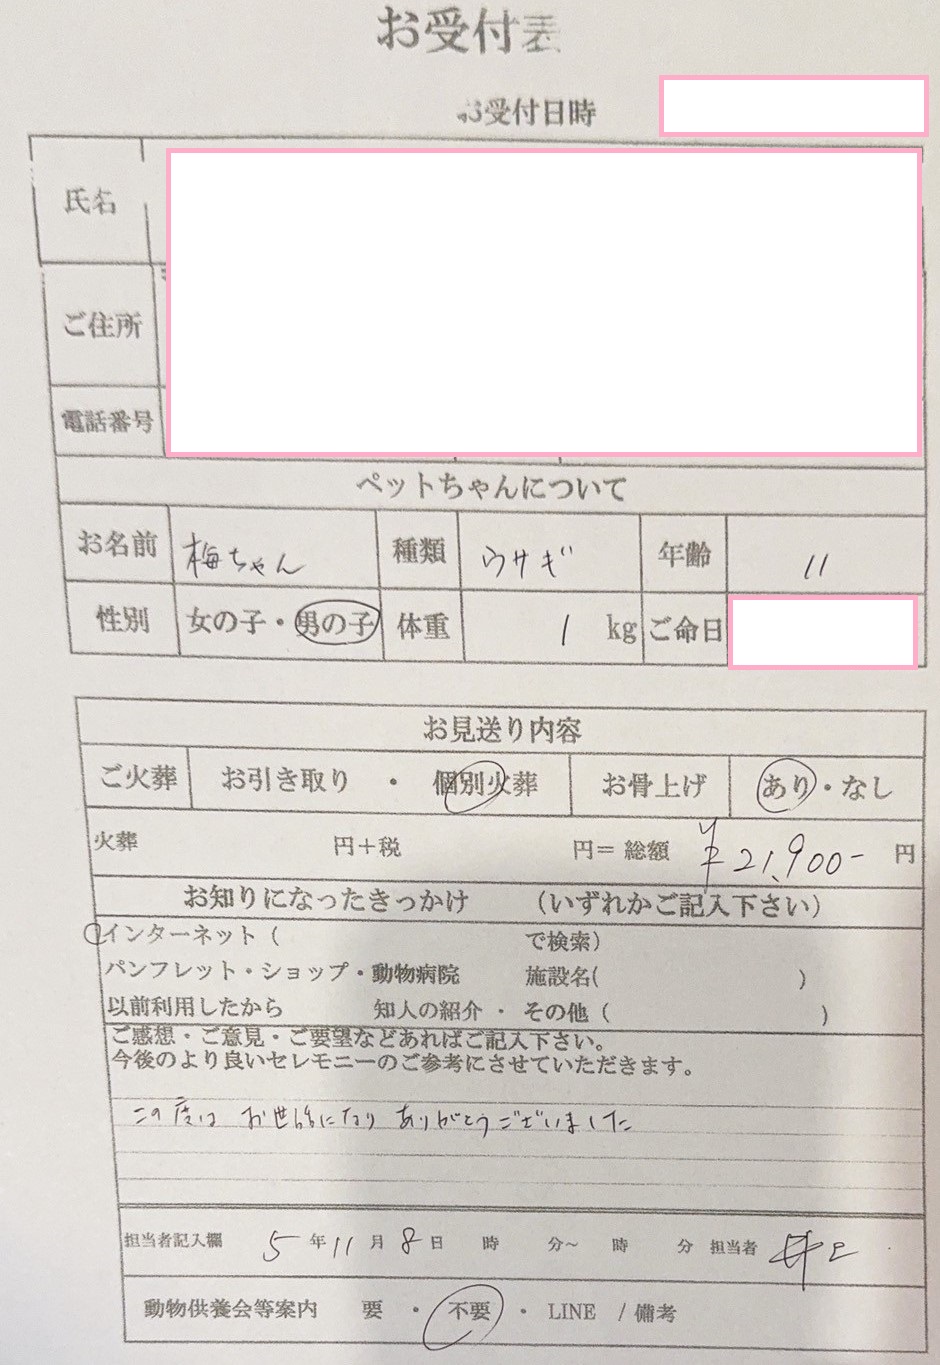 お受付表
お受付日時
氏名
ご住所
電話番号
ペットちゃんについて
お名前 梅ちゃん 種類 ウサギ 年齢 11
性別 女の子・男の子 体重 1 kg ご命日
お見送り内容
ご火葬 お引き取り ・ 個別火葬 お骨上げ あり・なし
火葬 円+税 円= 総額 ¥21,900- 円
お知りになったきっかけ (いずれかご記入下さい)
インターネット ( で検索)
パンフレット・ショップ・動物病院 施設名( )
以前利用したから 知人の紹介 ・ その他 ( )
ご感想・ご意見・ご要望などあればご記入下さい。
今後のより良いセレモニーのご参考にさせていただきます。
この度は お世話になり ありがとうございました
担当者記入欄 5 年 11 月 8 日 時 分~ 時 分 担当者
動物供養会等案内 要 ・ 不要 ・ LINE / 備考